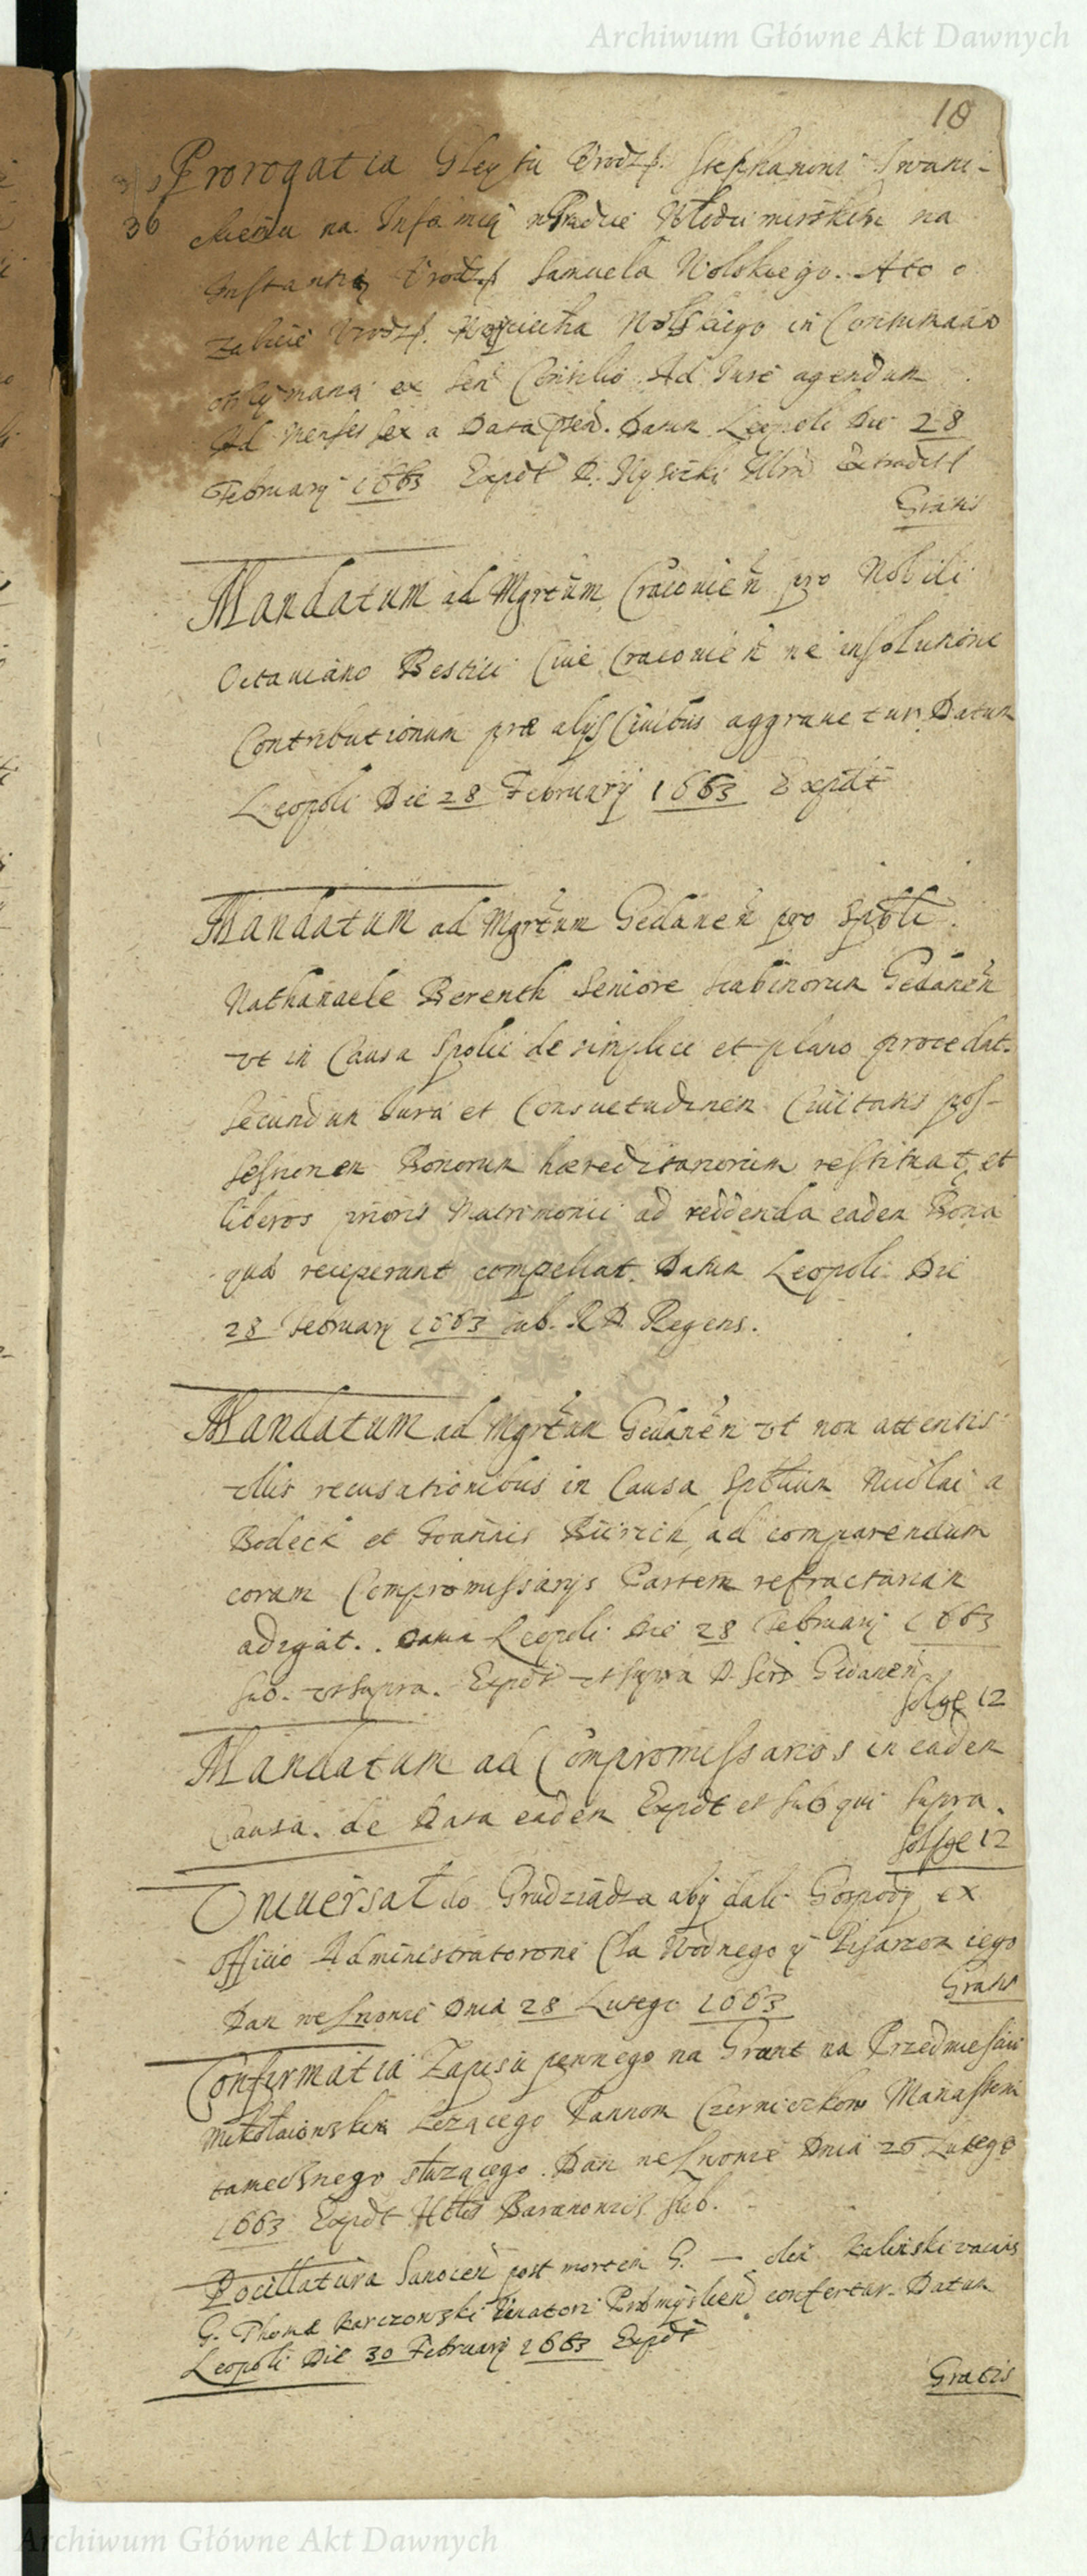 Archiwum Główne Akt Dawnych
18
Prorogatia Gleytu Urodz. Stephanowi Iwani-
36
na Infamią w Grodzie Włodzimirskim na
Instantią Urodz. Samuela Wolskiego. A to o
zabicie Urodz. Woyciecha Wolskiego in Contumaciam
otrzymaną ex Sen Consilio Ad Jure agendum
Ad Menses sex a Data pren. Datum Leopoli Die 28
February 1663 Expdt D. Extradit
Gratis
Mandatum ad Mgrtum Cracovien pro Nobili
Octaviano Bestici Cive Cracovien ne in solutione
Contributionum præ alijs Civibus aggravetur. Datum
Leopoli Die 28 February 1663 Expdt
Mandatum ad Mgrtum Gedanen pro Sptli
Nathanaele Berenth Seniore Scabinorum Gedanen
ut in Causa Spolii de simplici et plano procedat.
Secundum Jura et Consuetudinem Civitatis pos-
sessionem Bonorum hæreditariorum restituat, et
liberos prioris Matrimonii ad reddenda eadem Bona
quæ receperunt compellat. Datum Leopoli Die
28 February 1663 sub. R D Regens.
Mandatum ad Mgrtum Gedanen ut non attentis
ullis recusationibus in Causa Sptlium Nicolai a
Bodeck et Joannis ad comparendum
coram Compromissarijs Partem refractariam
adigat. Datum Leopoli Die 28 February 1663
Sub. ut supra. Expdt ut supra D. Gedanen
12
Mandatum ad Compromissarios in eadem
Causa. de Data eadem Expdt et sub qui supra.
12
Universał do Grudziądza aby dali Gospody ex
officio Administratorowi Cła Wodnego y Pisarzom iego
Gratis
Dan we Lwowie Dnia 28 Lutego 1663
Confirmatia Zapisu pewnego na Grunt na Przedmiesciu
Mikołaiowskim Leżącego Pannom Czerniczkom
tamecznego służącego. Dan we Lwowie Dnia 26 Lutego
1663 Expdt Baranowicz Sub.
Pocillatura Sanocen post mortem G. — olim Kalinski vacans
G. Thomæ Karczowski Venatori Præmyslien confertur. Datum
Leopoli Die 30 February 1663 Expdt
Gratis
Archiwum Główne Akt Dawnych